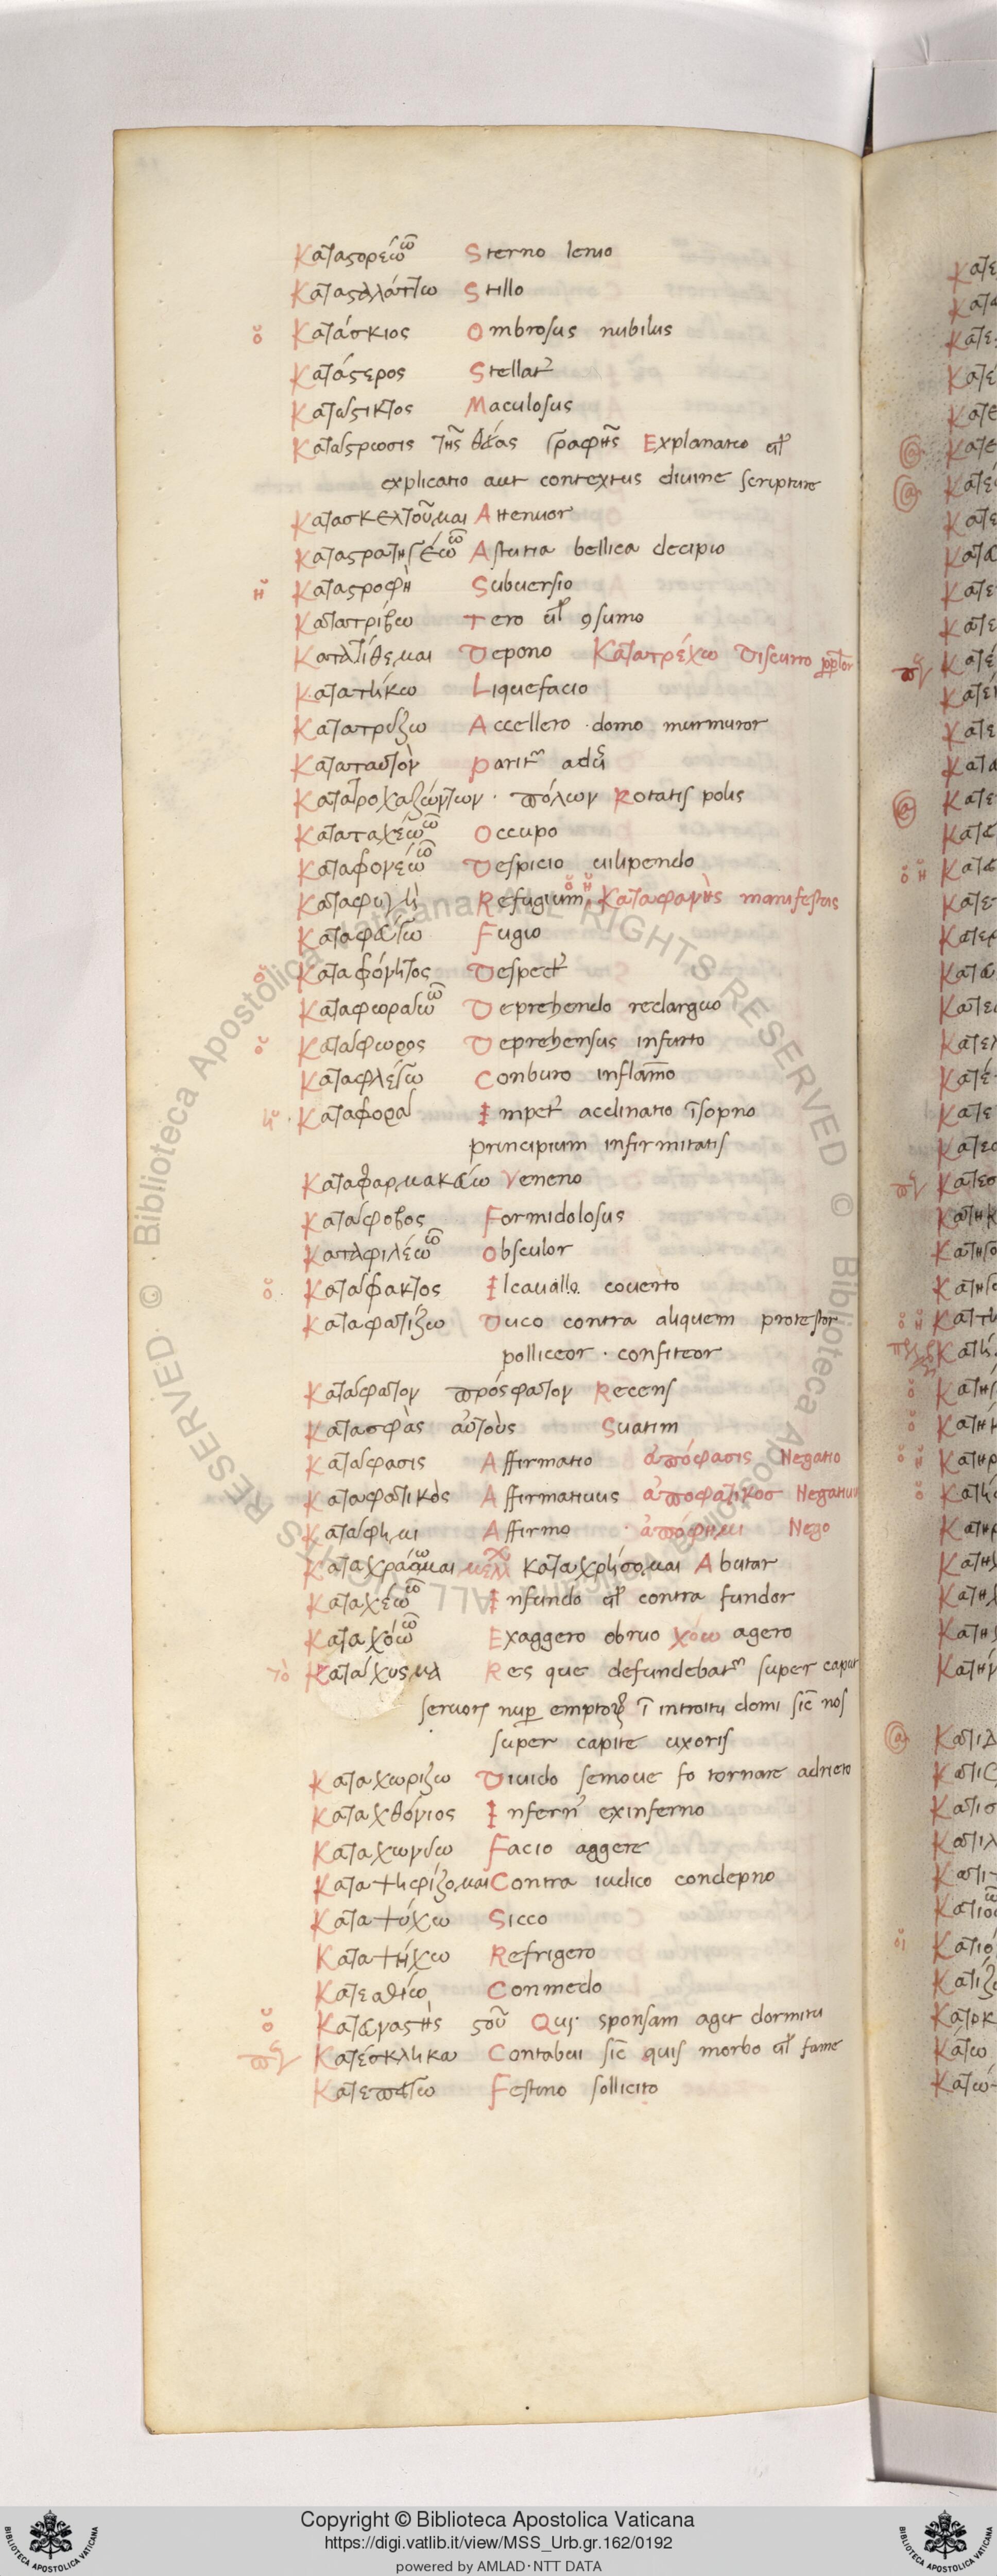 Καταστορέω ῶ Sterno lenio
Κατασταλάττω Stillo
ὁ Κατάσκιος Ombrosus nubilus
Κατάστερος Stellat᾽
Κατάστικτος Maculosus
Κατάστρωσις τῆς θείας γραφῆς Explanatio ul̄
explicatio aut contextus divine scripture
Κατασκελετοῦμαι Attenuor
Καταστρατηγέω ῶ Astutia bellica decipio
ἡ Καταστροφὴ Subversio
Κατατρίβω Tero ul̄ ꝯsumo
Κατατίθεμαι Depono Κατατρέχω Discurro
Κατατήκω Liquefacio
Κατατρύζω Accellero · domo murmuror
Καταταυτὸν
Κατατροχαζόντων · πόλων Rotatis polis
Καταταχέω ῶ Occupo
Καταφονέω ῶ Despicio vilipendo
Καταφυγὴ Refugium ὁ ἡ Καταφανὴς manifestus
Καταφεύγω Fugio
ὁ Καταφόνητος Despect᾽
Καταφωράω ῶ Deprehendo redarguo
ὁ Κατάφωρος Deprehensus infurto
Καταφλέγω Conburo inflam̄o
ἡ · Καταφορά Impet᾽ acclinatio ī sopno
principium infirmitatis
Καταφαρμακεύω Veneno
Κατάφοβος Formidolosus
Καταφιλέω ῶ Obsculor
ὁ · Κατάφακτος Il cavallo coverto
Καταφατίζω Duco contra aliquem protestor
polliceor · confiteor
Κατάφατον πρόσφατον Recens
Κατασφὰς αὐτοὺς Suatim
Κατάφασις Affirmatio ἀπόφασις Negatio
Καταφατικὸς Affirmativus ἀποφατικοσ Negativu
Κατάφημι Affirmo · ἀπόφημι Nego
Καταχράομαι ῶ μέλλ Καταχρήσομαι Abutar
Καταχέω ῶ Infundo ul̄ contra fundor
Καταχόω ῶ Exaggero obruo χόω agero
τὸ Κατάχυσμα Res que defundebat᷑ super caput
servoris nuꝑ emptoꝝ ī introitu domi sic̄ nos
super capite uxoris
Καταχωρίζω Divido semove fo tornare adrieto
Καταχθόνιος Infern᾽ exinferno
Καταχωνύω Facio aggere
Καταψηφίζομαι Contra iudico condepno
Καταψύχω Sicco
Καταψήχω Refrigero
Κατεαθίω Conmedo
ὁ Κατευναστὴς τοῦ Qui sponsam agit dormitu
Κατέσκληκα Contabui sic̄ quis morbo ul̄ fame
Κατεπείγω Festino sollicito
Copyright © Biblioteca Apostolica Vaticana
https://digi.vatlib.it/view/MSS_Urb.gr.162/0192
powered by AMLAD·NTT DATA